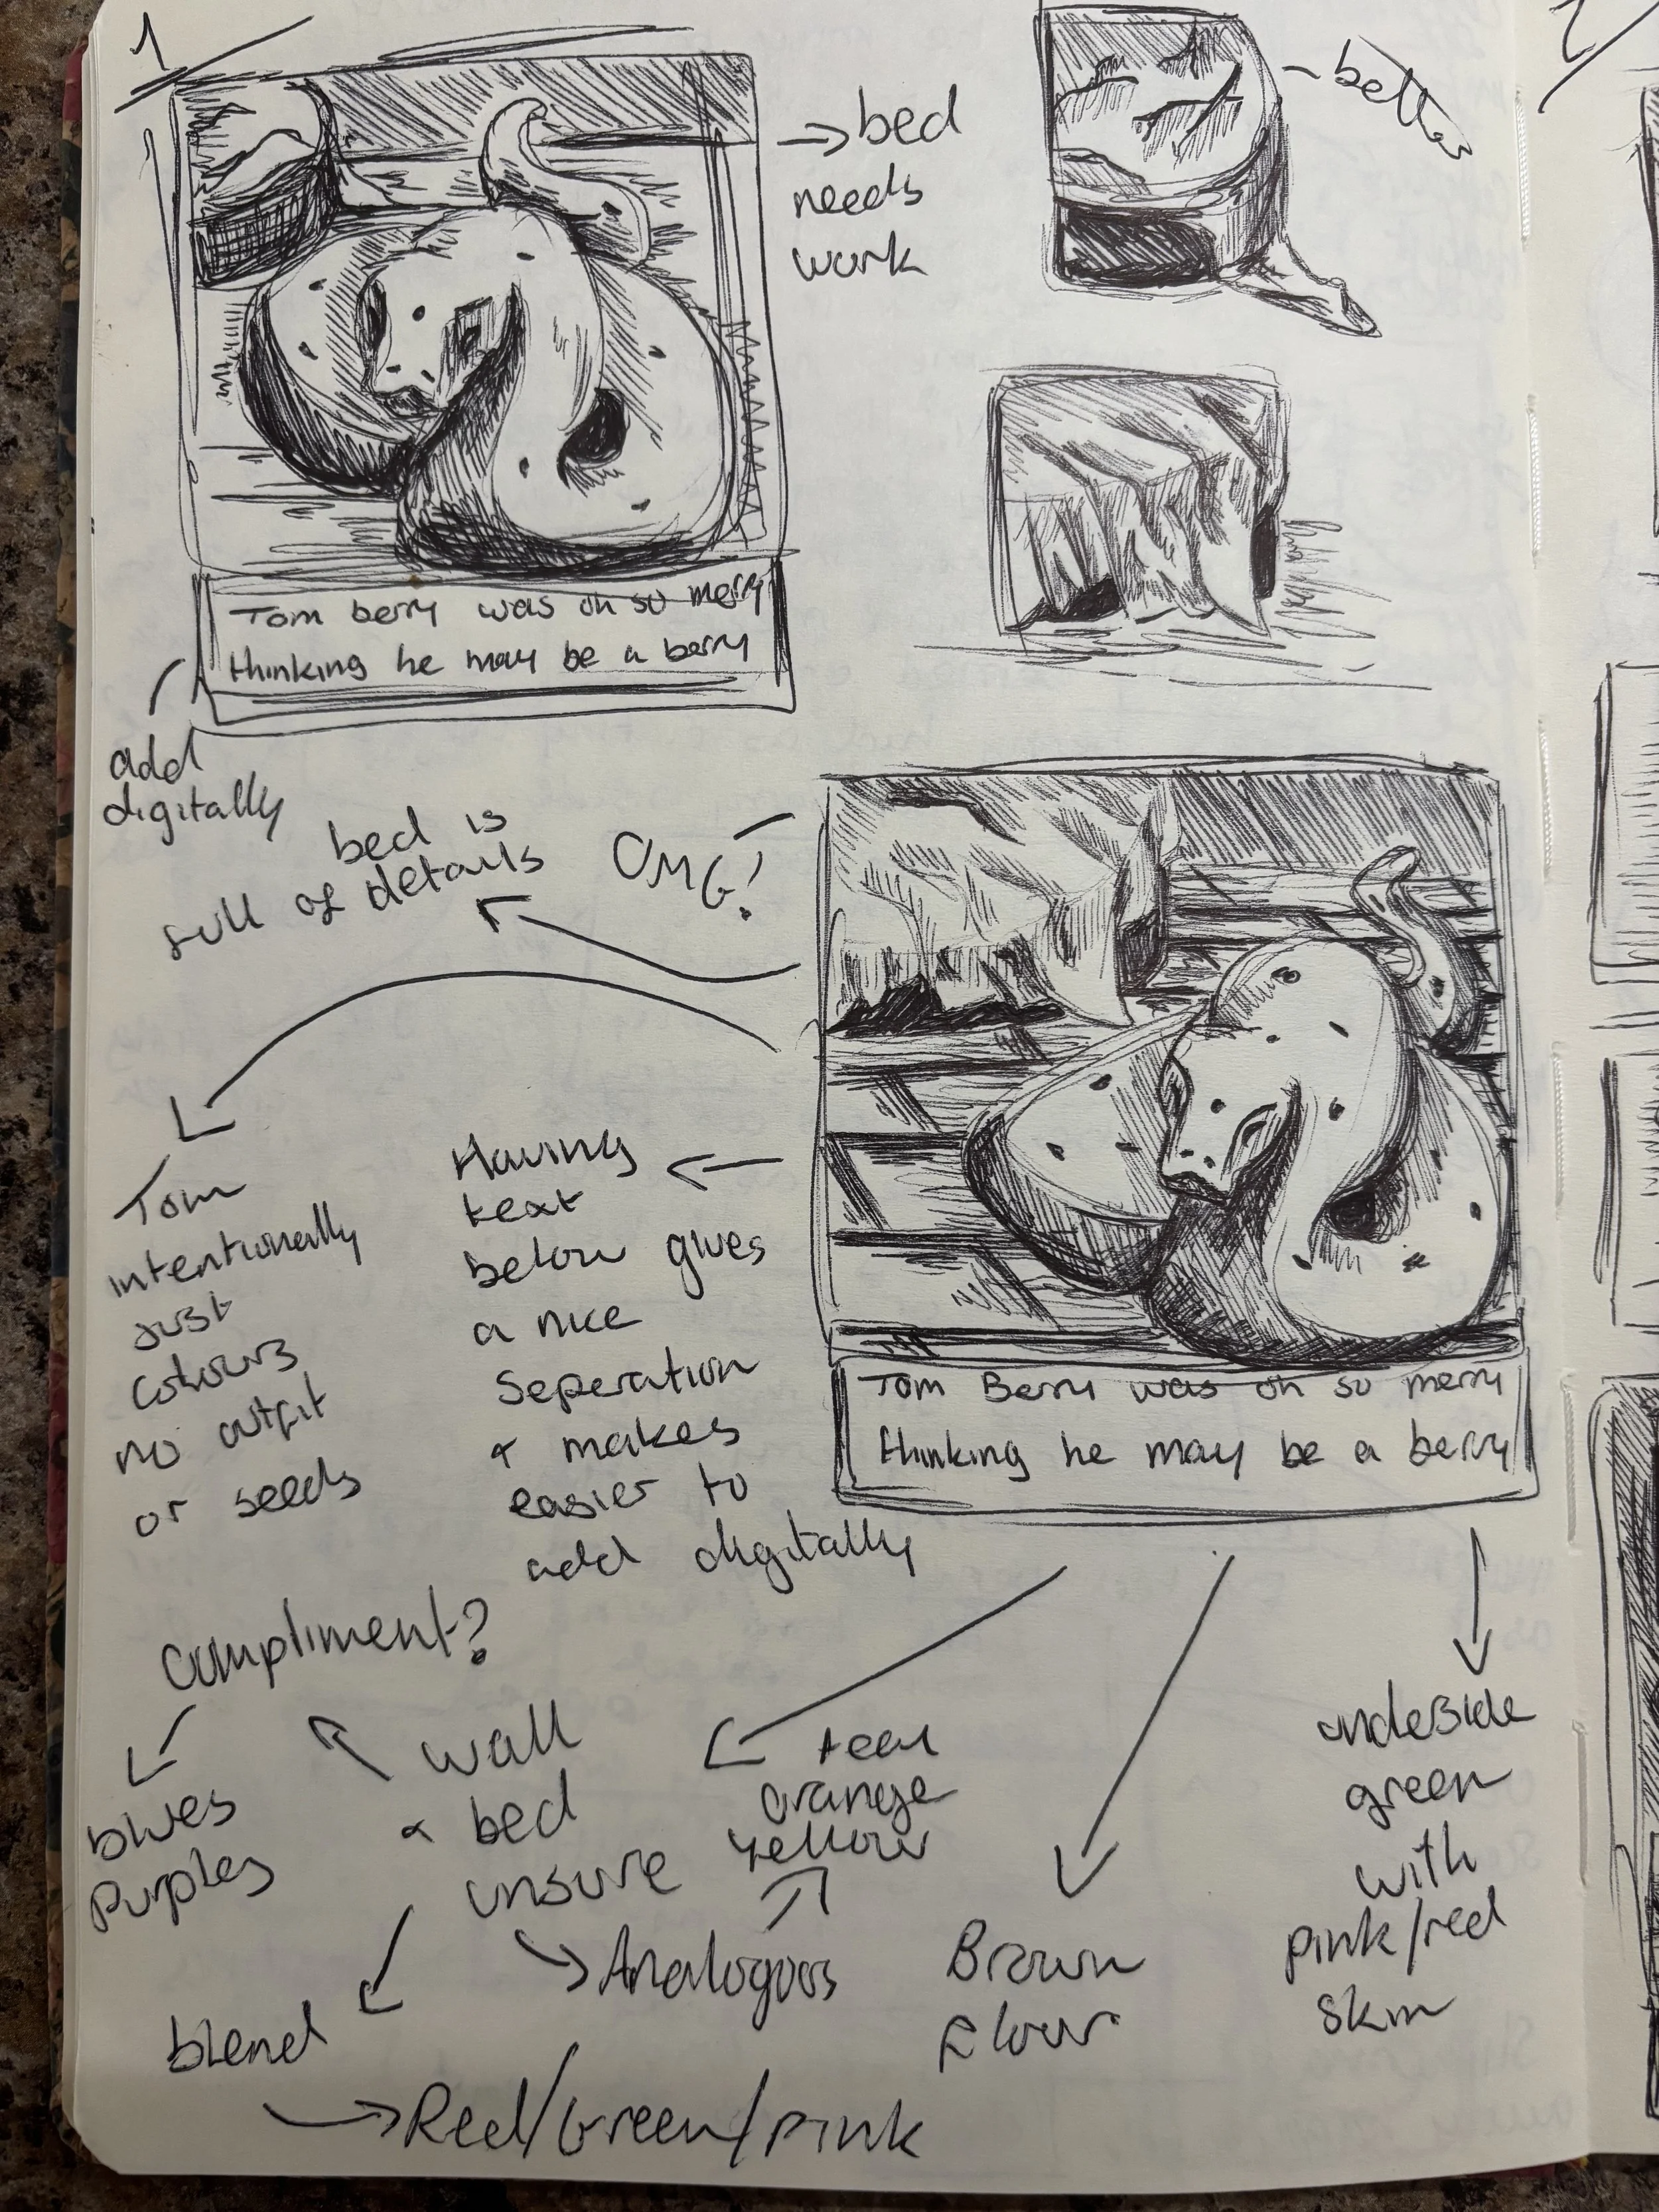 1
→ bed
needs
work
- better
Tom berry was oh so merry
thinking he may be a berry
add
digitally
bed is
full of details
OMG!
Tom
intentionally
just
colours
no outfit
or seeds
Having
text
below gives
a nice
seperation
& makes
easier to
add digitally
Tom Berry was oh so merry
thinking he may be a berry
compliment?
blues
purples
wall
& bed
unsure
teal
orange
yellow
Analogous
blend
Red/Green/pink
Brown
floor
underside
green
with
pink/red
skin
2